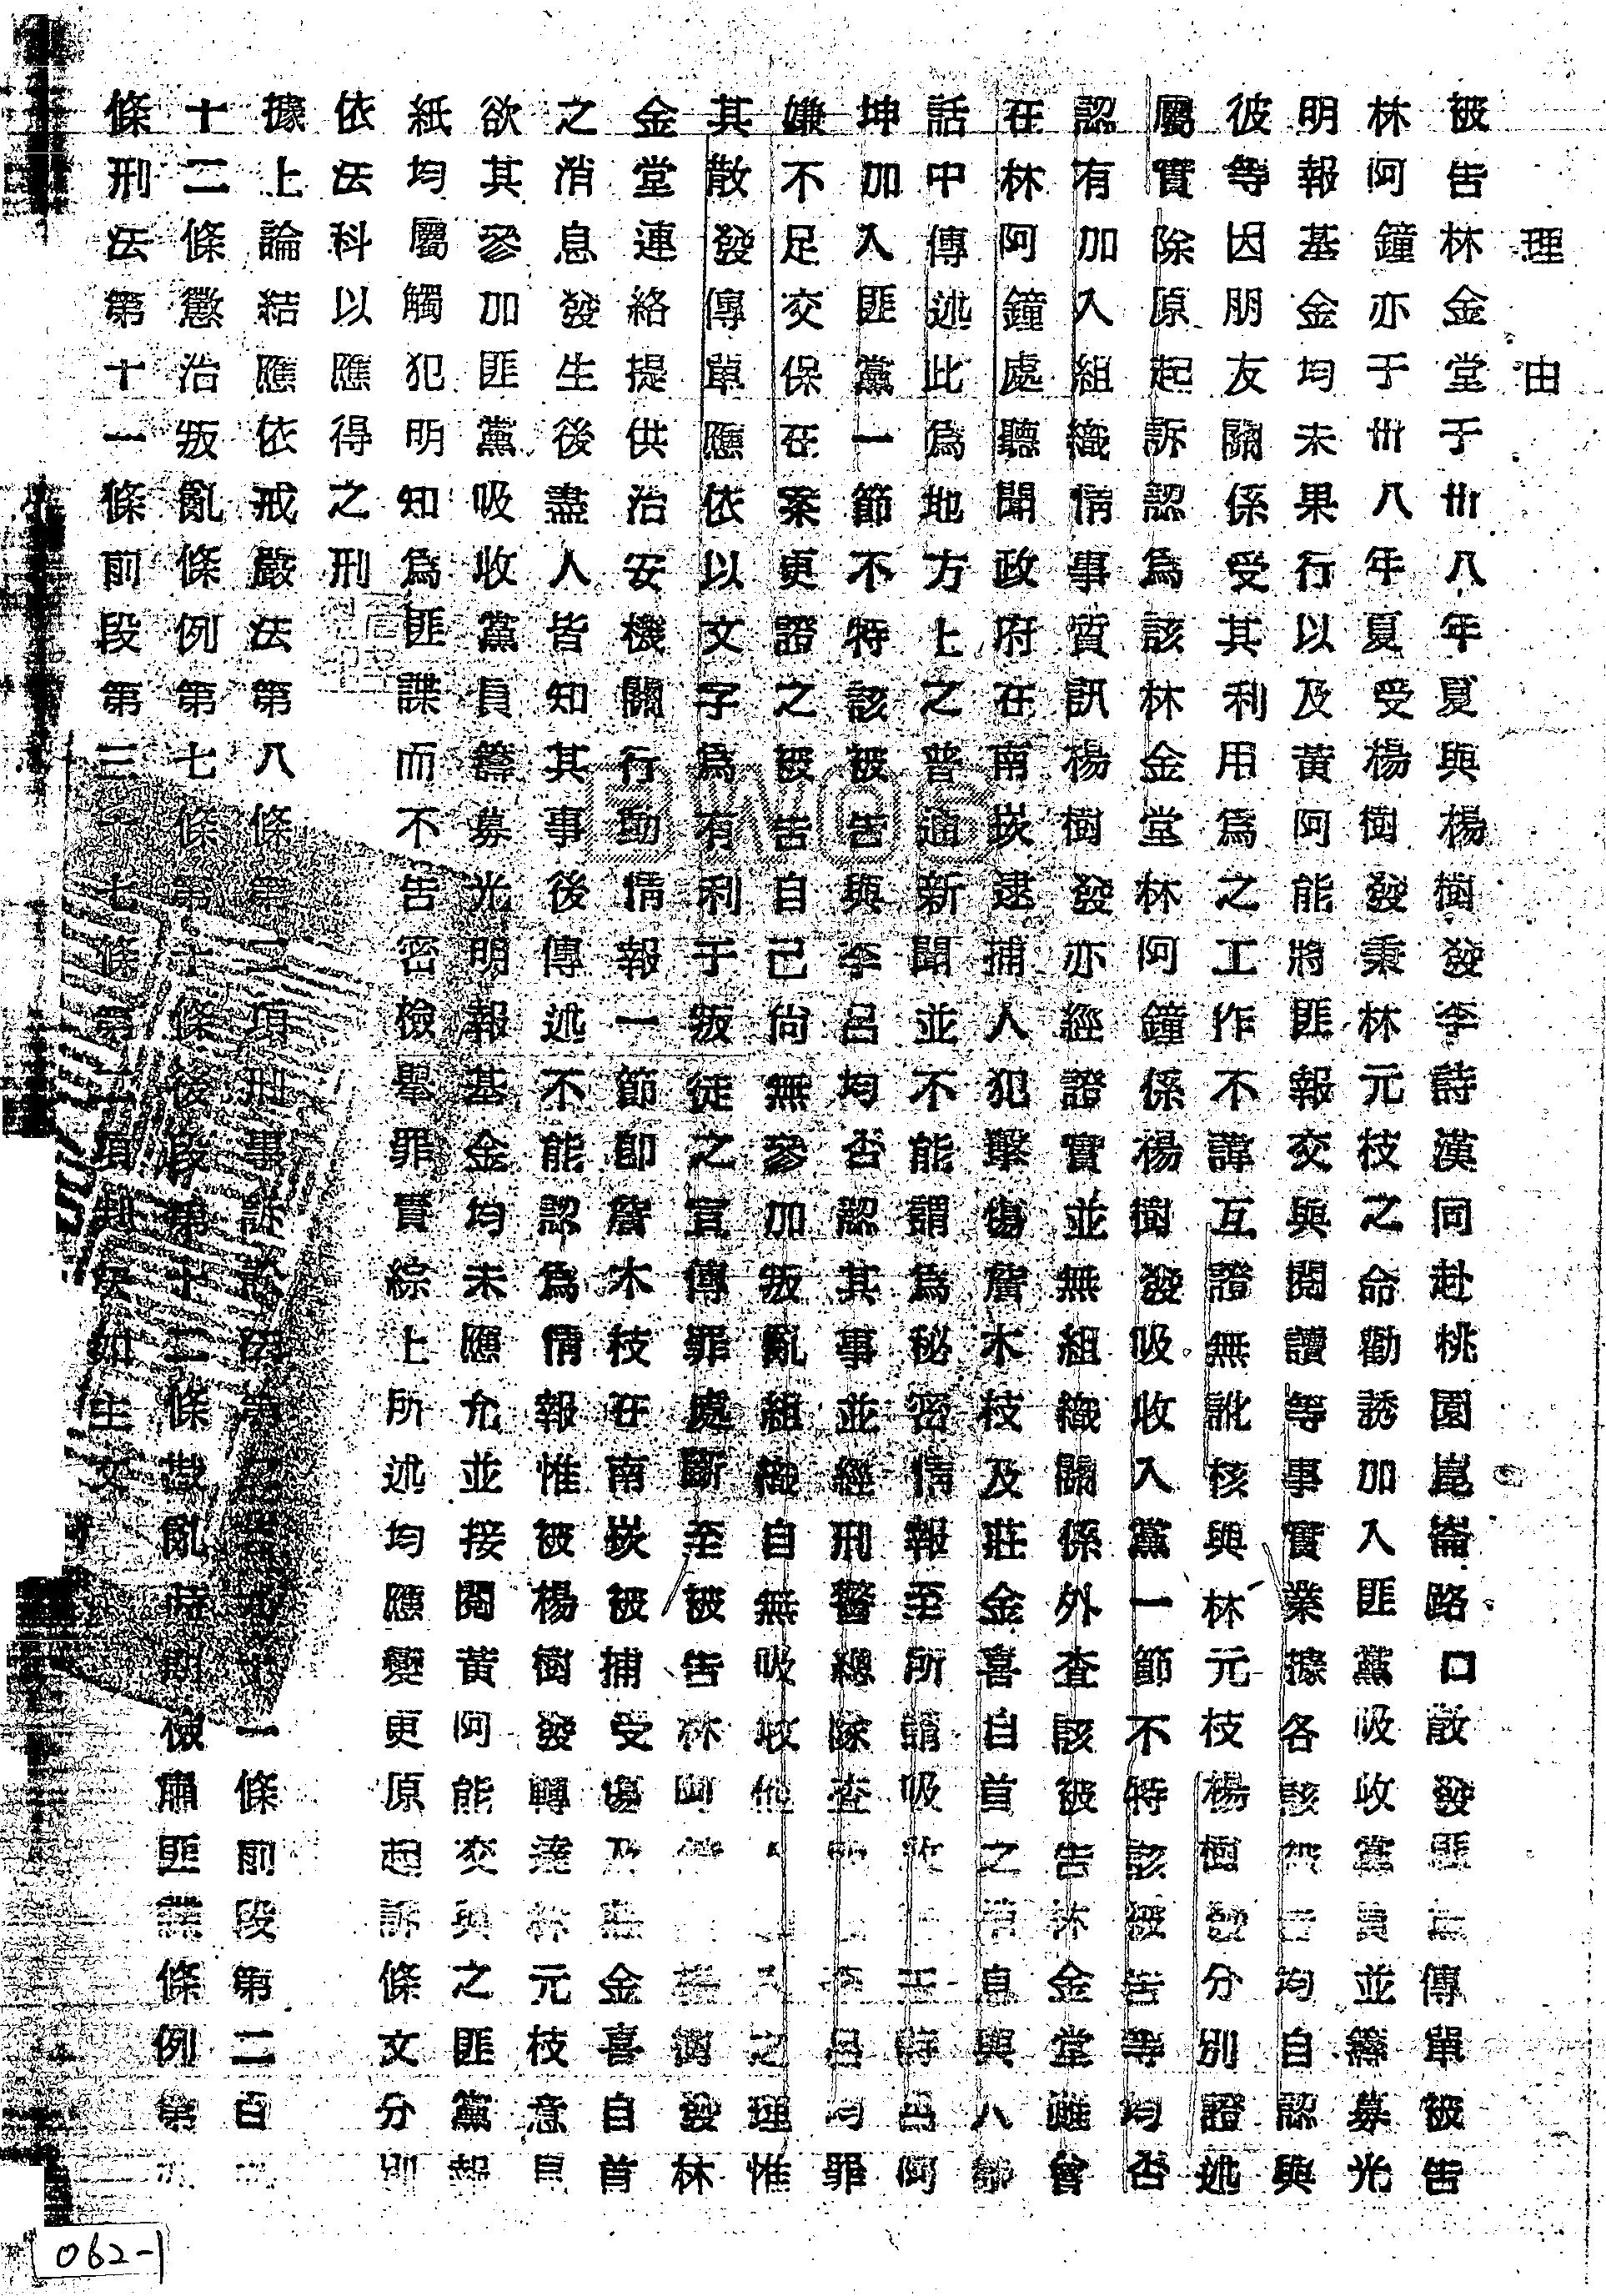 理由
被告林金堂于卅八年夏與楊樹發李詩漢同赴桃園崑崙路口散發匪傳單被告
林阿鐘亦于卅八年夏受楊樹發秉林元枝之命勸誘加入匪黨吸收黨員並籌募光
明報基金均未果行以及黃阿能將匪報交與閱讀等事實業據各該被告均自認與
彼等因朋友關係受其利用為之工作不諱互證無訛核與林元枝楊樹發分別證述
屬實除原起訴認為該林金堂林阿鐘係楊樹發吸收入黨一節不特該被告等均否
認有加入組織情事質訊楊樹發亦經證實並無組織關係外查該被告林金堂雖曾
在林阿鐘處聽聞政府在南崁逮捕人犯擊傷詹木枝及莊金喜自首之 息與八鄰
話中傳述此為地方上之普通新聞並不能謂為秘密情報至所謂吸收 王時呂阿
坤加入匪黨一節不特該被告與李呂均否認其事並經刑警總隊查 李呂均罪
嫌不足交保在案更證之被告自己尚無參加叛亂組織自無吸收他人 之理惟
其散發傳單應依以文字為有利于叛徒之宣傳罪處斷至被告林阿 樹發林
金堂連絡提供治安機關行動情報一節即詹木枝在南崁被捕受傷及 金喜自首
之消息發生後盡人皆知其事後傳述不能認為情報惟被楊樹發轉達林元枝意
欲其參加匪黨吸收黨員籌募光明報基金均未應允並接閱黃阿能交與之匪黨報
紙均屬觸犯明知為匪諜而不告密檢舉罪責綜上所述均應變更原起訴條文分別
依法科以應得之刑
據上論結應依戒嚴法第八條第二項刑事訴訟法第 一條前段第二百
十二條懲治叛亂條例第七條第十條後段第十二條戡亂時期檢肅匪諜條例第
條刑法第十一條前段第三十七條第二項 如主文
BWOS
062-1